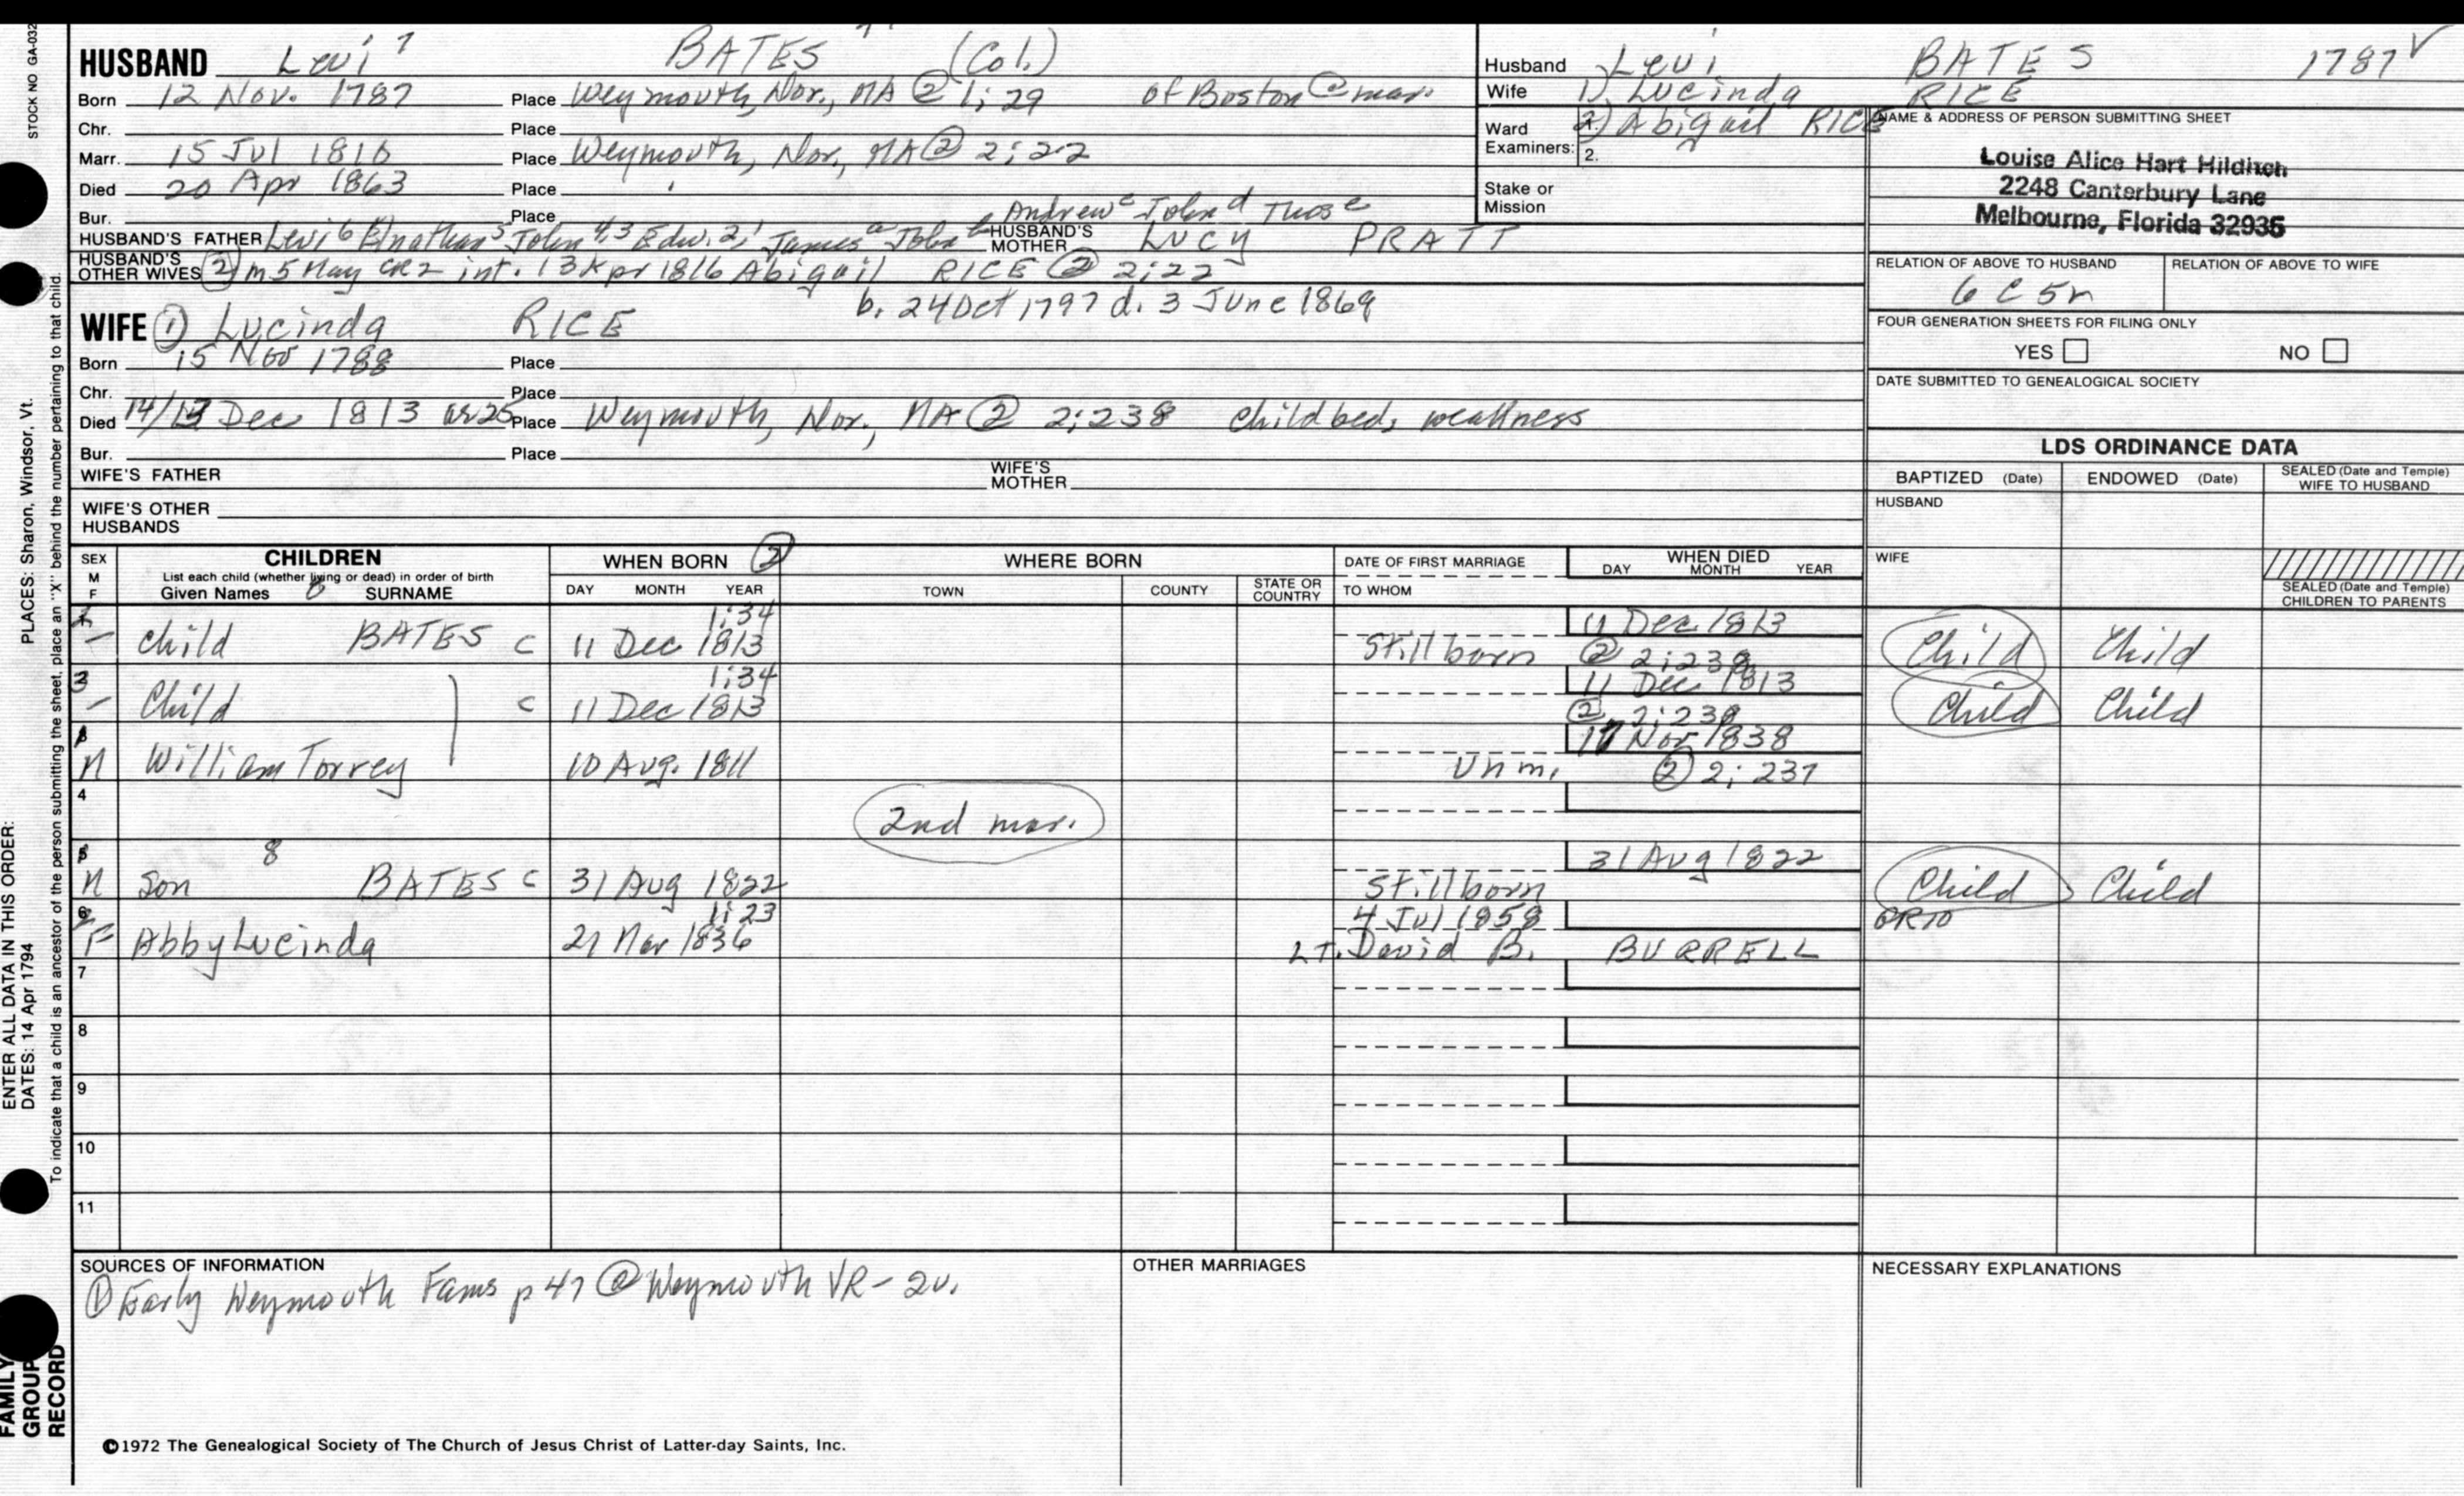 STOCK NO GA-032
HUSBAND Levi 7 BATES (Col.)
Born 12 Nov. 1787 Place Weymouth, Nor., MA ② 1; 29 of Boston @ mar.
Chr. Place
Marr. 15 Jul 1810 Place Weymouth, Nor., MA ② 2; 22
Died 20 Apr 1863 Place
Bur. Place Andrew c John d Thos e
HUSBAND'S FATHER Levi 6 Elnathan 5 John 4,3 Edw. 2,1 James a John b HUSBAND'S MOTHER LUCY PRATT
HUSBAND'S OTHER WIVES ② m 5 May CR2 int. 13 Apr 1816 Abigail RICE ② 2; 22
b. 24 Oct 1797 d. 3 June 1869
WIFE ① Lucinda RICE
Born 15 Nov 1788 Place
Chr. Place
Died 14/13 Dec 1813 ae 25 Place Weymouth, Nor., MA ② 2; 238 Childbed, weakness
Bur. Place
WIFE'S FATHER WIFE'S MOTHER
WIFE'S OTHER HUSBANDS
Husband Levi BATES 1787 V
Wife 1) Lucinda RICE
2) Abigail RICE
Ward Examiners: 2.
Stake or Mission
NAME & ADDRESS OF PERSON SUBMITTING SHEET
Louise Alice Hart Hilditch
2248 Canterbury Lane
Melbourne, Florida 32935
RELATION OF ABOVE TO HUSBAND RELATION OF ABOVE TO WIFE
6 C 5r
FOUR GENERATION SHEETS FOR FILING ONLY
YES NO
DATE SUBMITTED TO GENEALOGICAL SOCIETY
LDS ORDINANCE DATA
BAPTIZED (Date) ENDOWED (Date) SEALED (Date and Temple) WIFE TO HUSBAND
HUSBAND
WIFE
SEALED (Date and Temple) CHILDREN TO PARENTS
SEX M F CHILDREN WHEN BORN ② WHERE BORN DATE OF FIRST MARRIAGE WHEN DIED
List each child (whether living or dead) in order of birth
Given Names 8 SURNAME DAY MONTH YEAR TOWN COUNTY STATE OR COUNTRY TO WHOM DAY MONTH YEAR
1;34 11 Dec 1813
– child BATES C 11 Dec 1813 Stillborn ② 2;238 Child Child
3 1;34 11 Dec 1813
– Child C 11 Dec 1813 ② 2;238 Child Child
17 Nov 1838
M William Torrey 10 Aug. 1811 Unm. ② 2; 237
4
2nd mar.
8 31 Aug 1822
M Son BATES C 31 Aug 1822 Stillborn Child Child
6 1;23 4 Jul 1858 GR10
F Abby Lucinda 21 Mar 1836 LT. David B. BURRELL
7
8
9
10
11
SOURCES OF INFORMATION OTHER MARRIAGES NECESSARY EXPLANATIONS
① Early Weymouth Fams p 47 ② Weymouth VR – 2v.
©1972 The Genealogical Society of The Church of Jesus Christ of Latter-day Saints, Inc.
PLACES: Sharon, Windsor, Vt.
ENTER ALL DATA IN THIS ORDER:
DATES: 14 Apr 1794
To indicate that a child is an ancestor of the person submitting the sheet, place an "X" behind the number pertaining to that child.
FAMILY GROUP RECORD